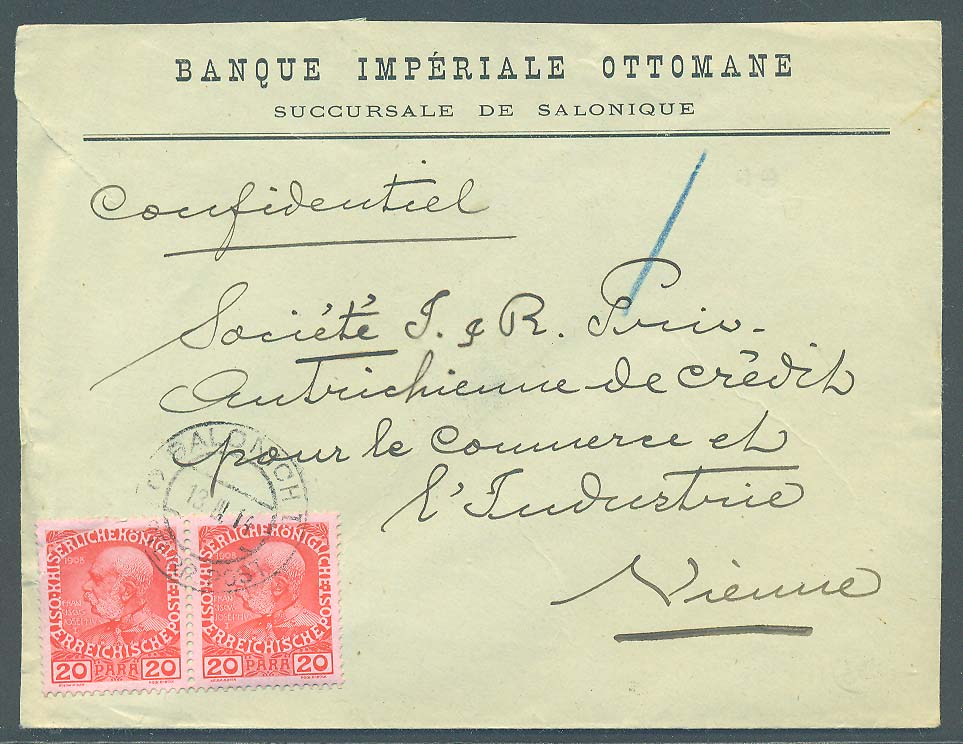 BANQUE IMPÉRIALE OTTOMANE
SUCCURSALE DE SALONIQUE
Confidentiel
Société I. & R. Priv.
Autrichienne de crédit
pour le Commerce et
l'Industrie
Vienne
SALONICH
13 III 14
POST
KAISERLICHEKÖNIGLICHE
ÖSTERREICHISCHE POST
1908
FRAN
JOSEPH I
20 PARA 20
KAISERLICHEKÖNIGLICHE
ÖSTERREICHISCHE POST
1908
20 PARA 20